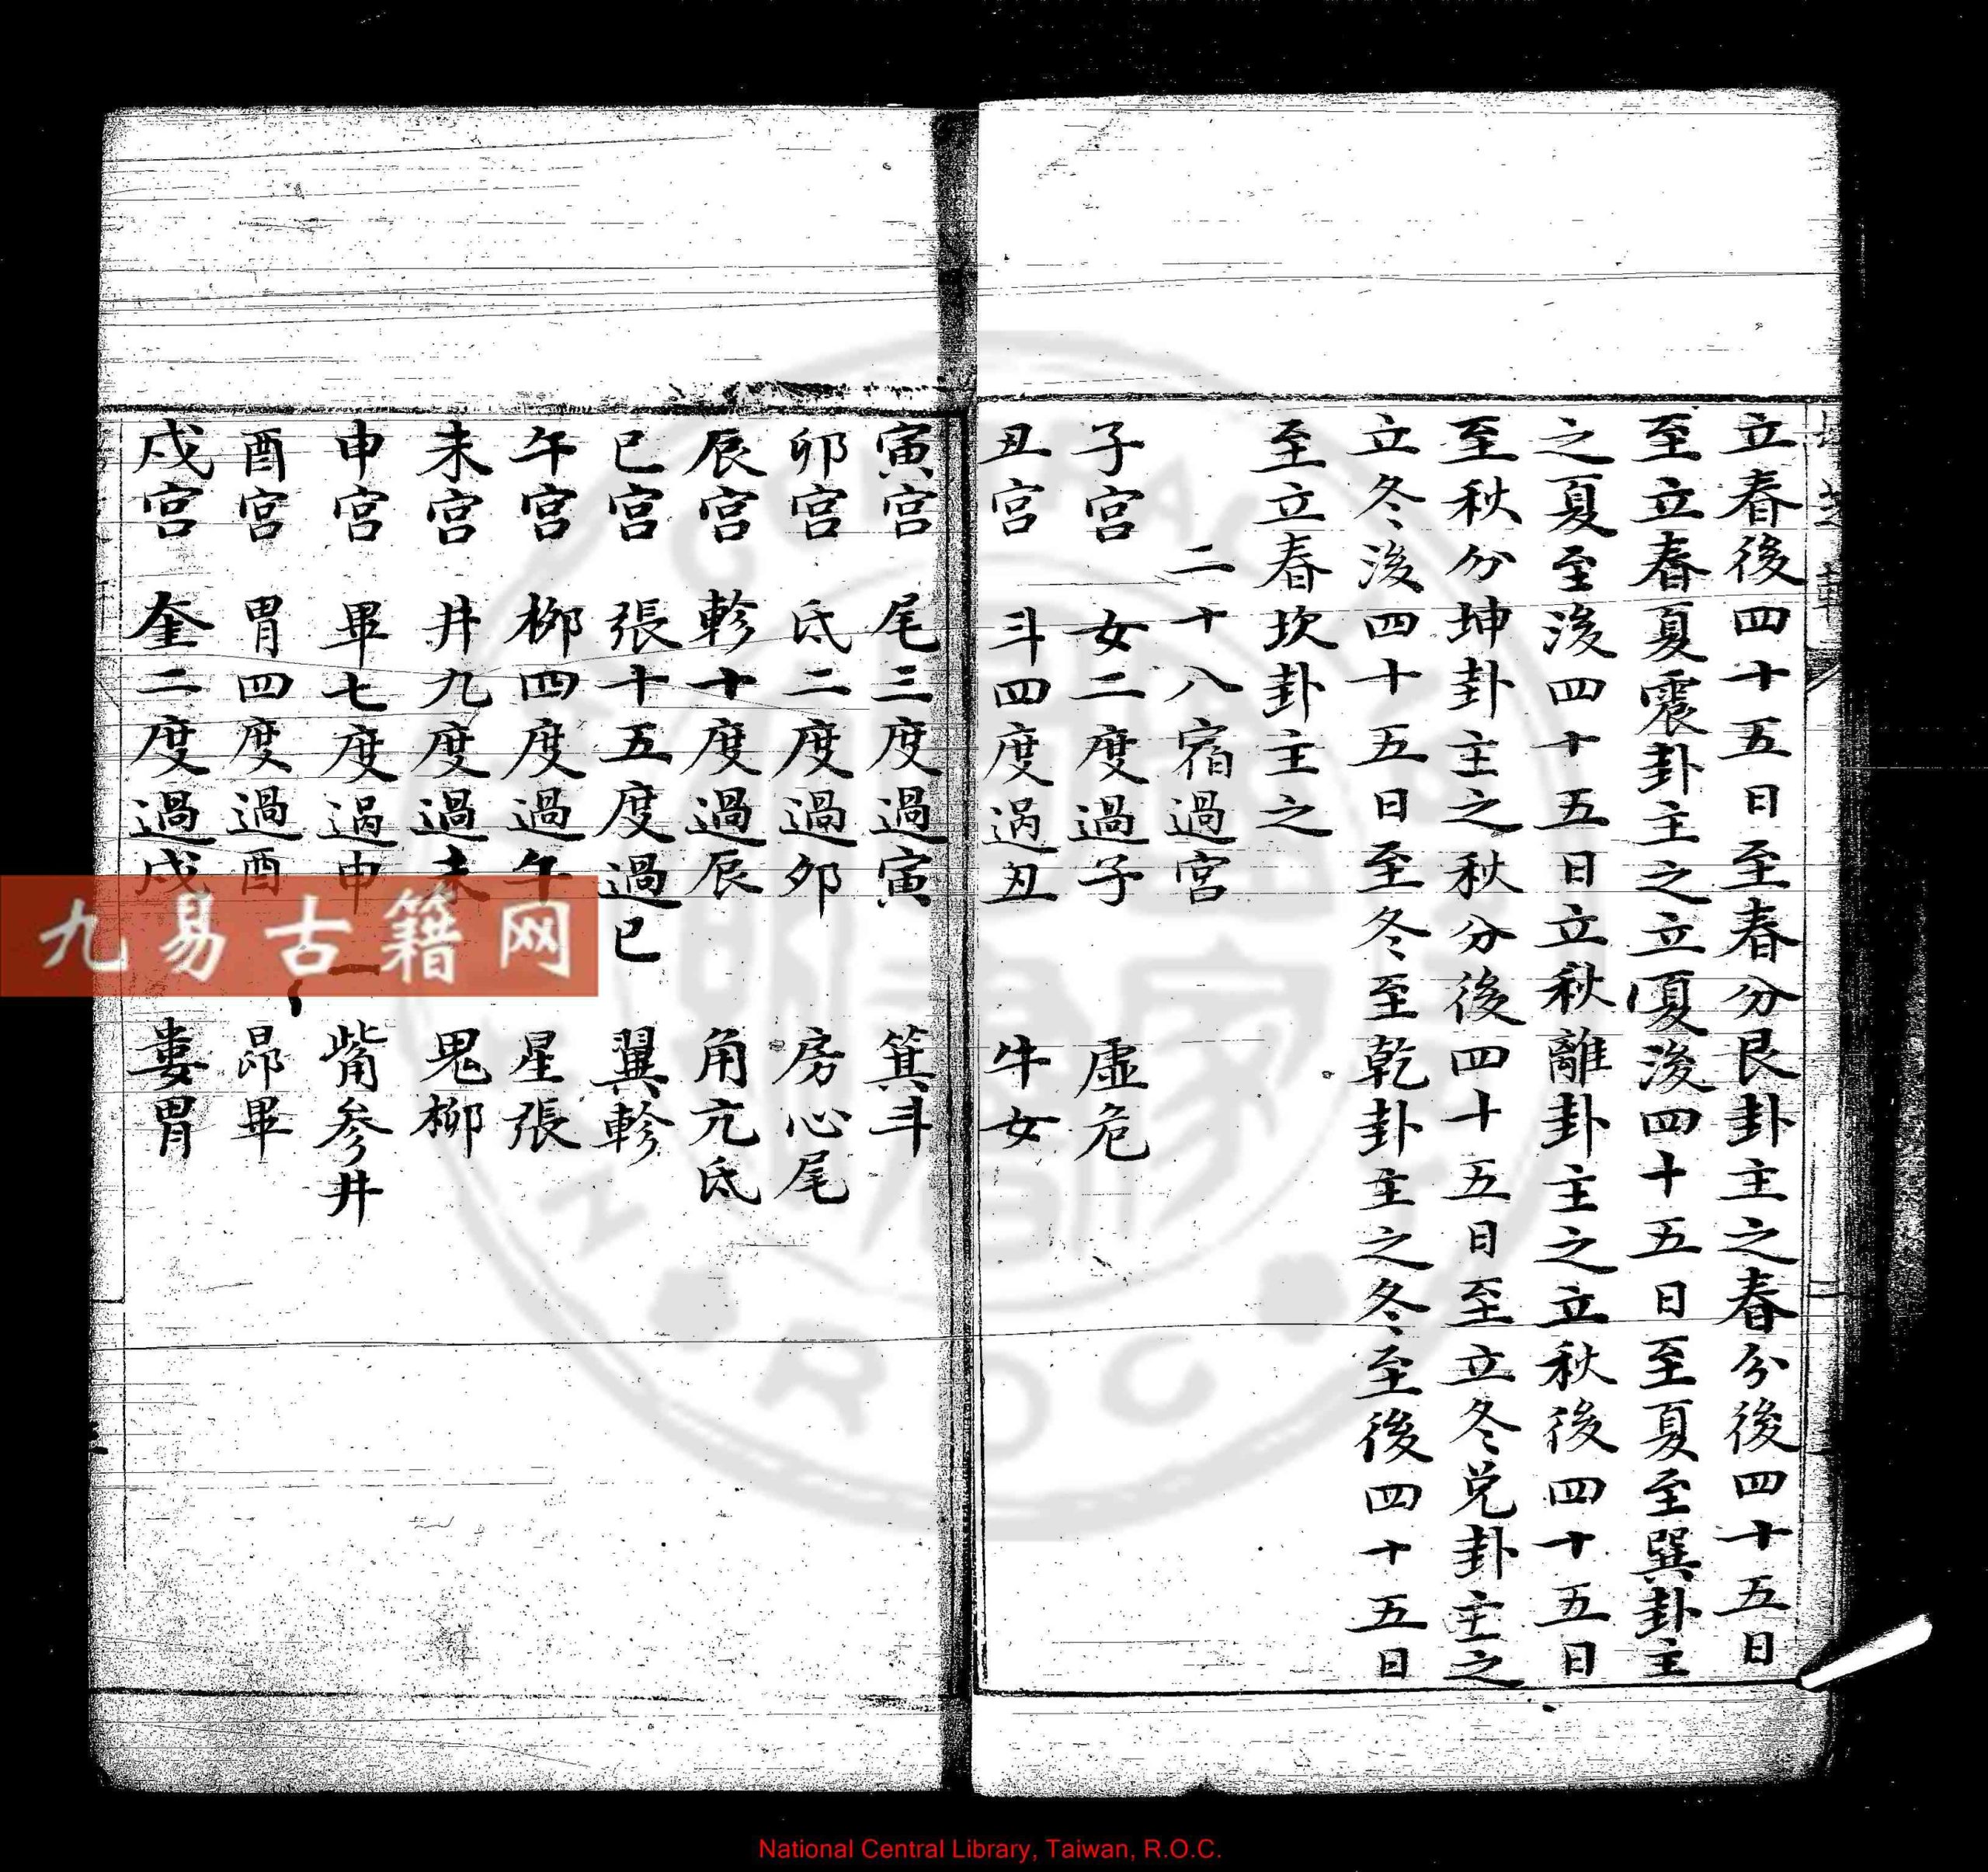 立春後四十五日至春分艮卦主之春分後四十五日
至立春夏震卦主之立夏後四十五日至夏至巽卦主
之夏至後四十五日立秋離卦主之立秋後四十五日
至秋分坤卦主之秋分後四十五日至立冬兌卦主之
立冬後四十五日至冬至乾卦主之冬至後四十五日
至立春坎卦主之
二十八宿過宮
子宮 女二度過子 虛危
丑宮 斗四度過丑 牛女
寅宮 尾三度過寅 箕斗
卯宮 氐二度過卯 房心尾
辰宮 軫十度過辰 角亢氐
巳宮 張十五度過巳 翼軫
午宮 柳四度過午 星張
未宮 井九度過未 鬼柳
申宮 畢七度過申 觜參井
酉宮 胃四度過酉 昴畢
戌宮 奎二度過戌 婁胃
九易古籍网
National Central Library, Taiwan, R.O.C.